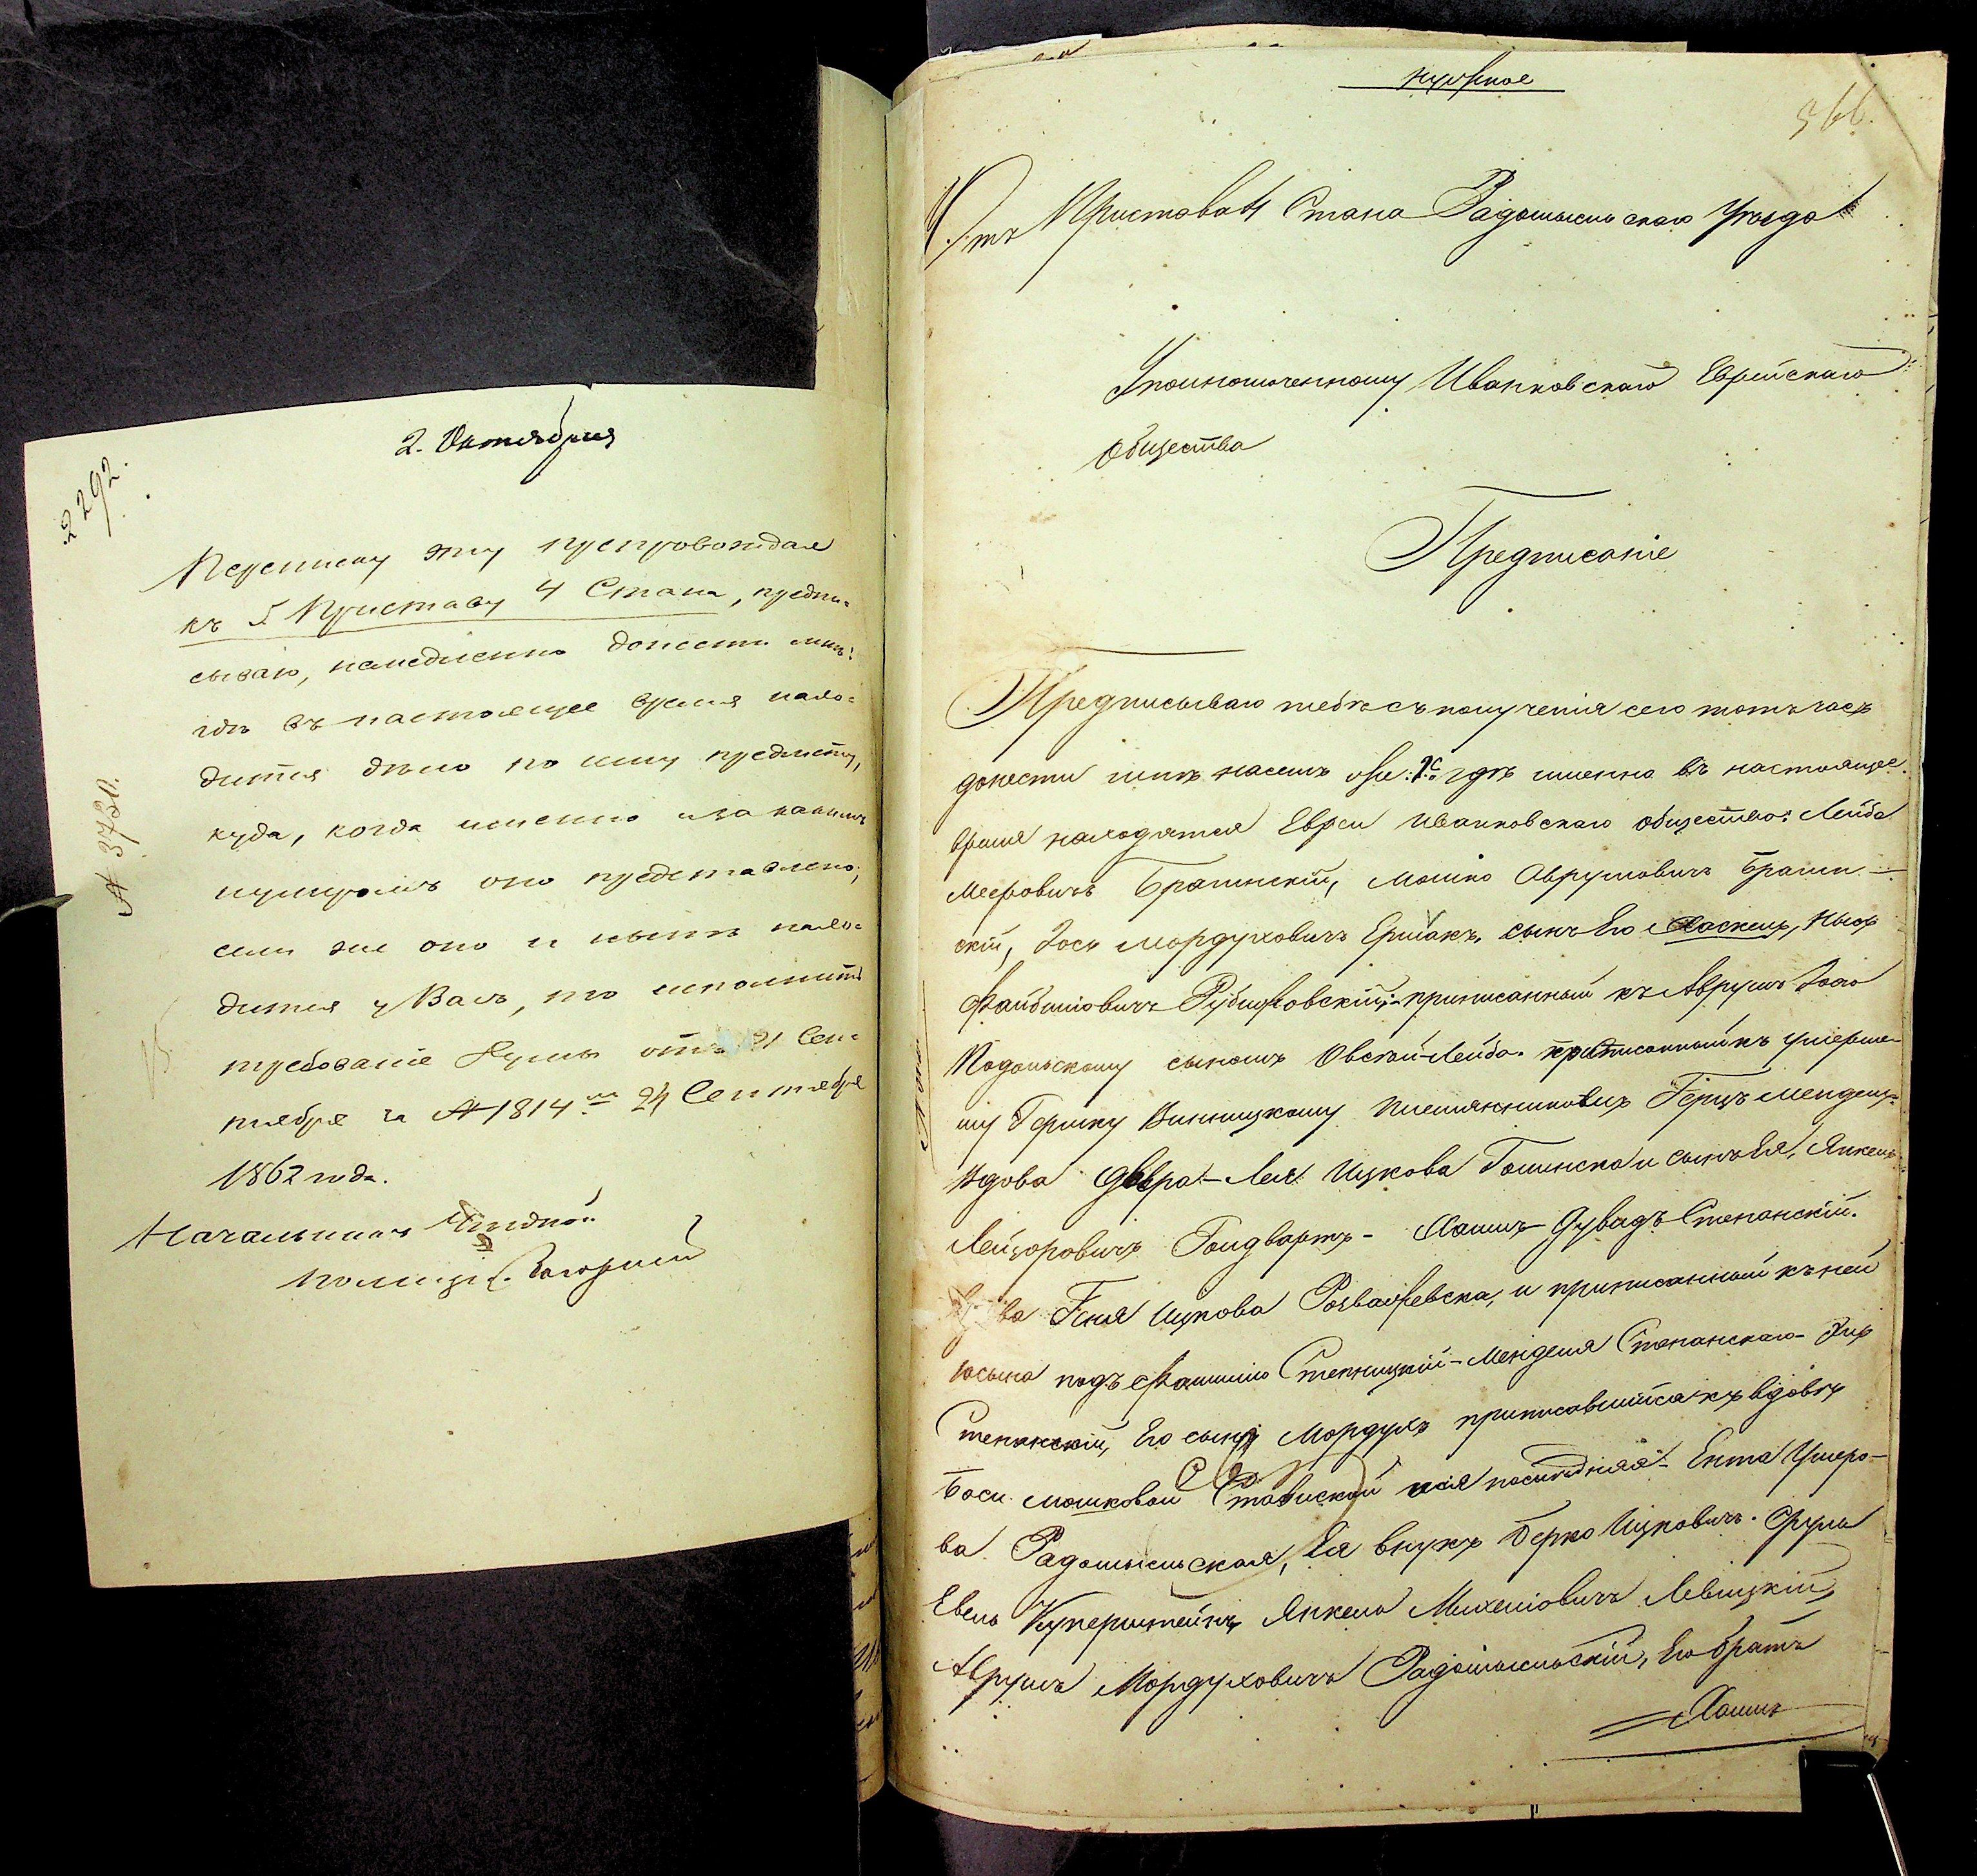 2. Октября
2292.
Переписку эту препровождая
къ Г. Приставу 4 Стана, предпи-
сываю, немедленно донести мнѣ:
гдѣ въ настоящее время нахо-
дится дѣло по сему предмету,
куда, когда именно и за какимъ
нумеромъ оно представлено;
если же оно и нынѣ нахо-
дится у Васъ, то исполнить
требованіе Думы отъ 21 Сен-
тября за № 1814 24 Сентября
1862 года.
№ 3731.
Начальникъ Уѣздной
полиціи
нужное
366.
Отъ Пристава 4 Стана Радомысльскаго Уѣзда
Уполномоченному Иванковскаго Еврейскаго
Общества
Предписаніе
Предписываю тебѣ съ полученія сего тотъ часъ
донести мнѣ гдѣ именно въ настоящее
время находятся Евреи Иванковскаго общества: Лейба
Мееровичъ Брагинскій, Мошко Аврумовичъ Брагин-
скій, Іось Мордуховичъ Ермакъ, сынъ Его Хаскель,
Файбишовичъ приписанный къ Авруму Іосю
Подольскому сыномъ Овсѣй-Лейба. приписанный къ умерше-
му Гершку Винницкому племянникомъ Герцъ Мендель,
Вдова Двера-Лея Ицкова и сынъ Ея, Янкель
Лейзоровичъ Гольдвартъ - Хаимъ-Дувидъ Степанскій.
Ицкова и приписанный къ ней
сына подъ Фамиліею Степницкій - Менделя Степанскаго -
Степанскій, Его сынъ Мордухъ приписавшійся къ вдовѣ
Боси Мошковой Ставиской послѣдняя - Ента Умеро-
ва Радомысльская, Ея внукъ Берко Ицковичъ. Сруль
Евель Куперштейнъ, Янкель Михелiовичъ Левицкій,
Аврумъ Мордуховичъ Радомысльскій, Его братъ
Хаимъ